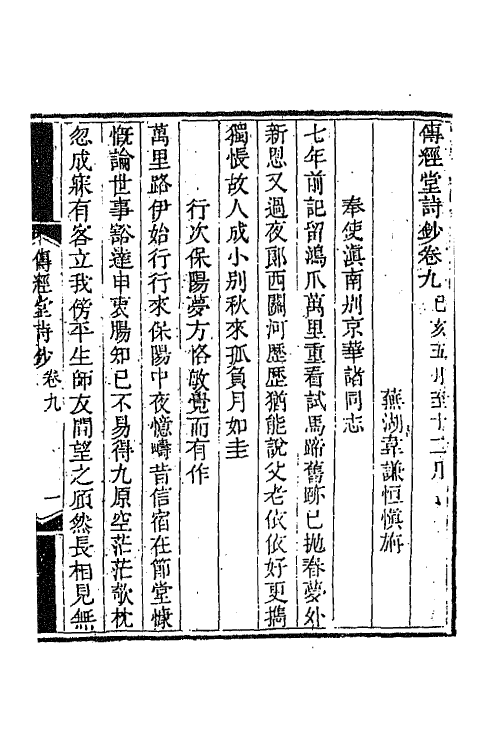 傳經堂詩鈔卷九 己亥五月至十二月
蕪湖韋謙恒愼旃
奉使滇南別京華諸同志
七年前記留鴻爪萬里重看試馬蹄舊跡已拋春夢处
新恩又過夜郎西關河歷歷猶能說父老依依好更攜
獨悵故人成小別秋來孤負月如圭
行次保陽夢方恪敏覺而有作
萬里路伊始行行來保陽中夜憶疇昔信宿在節堂慷
慨論世事豁達申衷腸知已不易得九原空茫茫欹枕
忽成寐有客立我傍平生師友間望之頎然長相見無
傳經堂詩鈔 卷九 一